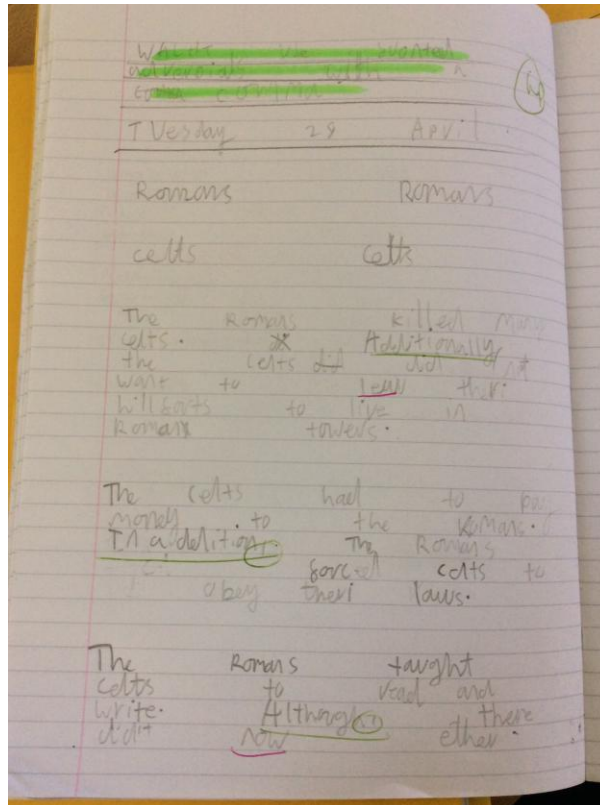 WALDT use
adverbials with a
comma
Tuesday 29 April
Romans Romans
celts celts
The Romans killed many
celts. Additionally,
the celts did did not
want to leav theri
hillforts to live in
Roman towers.
The celts had to pay
money to the Romans.
In addition, The Romans
forced celts to
obey theri laws.
The Romans taught
celts to read and
write. Although, there
did't now ether.